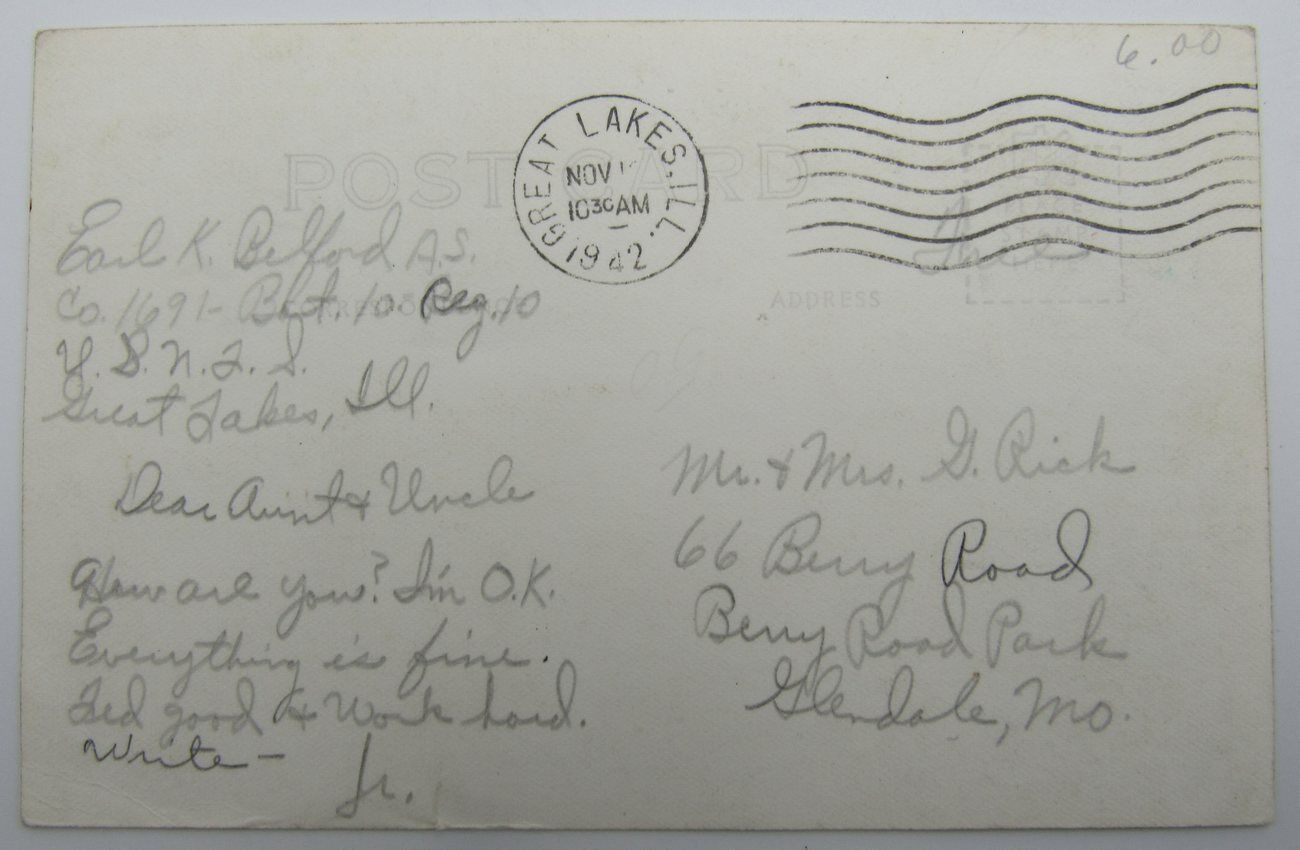 6.00
POST CARD
GREAT LAKES, ILL.
NOV 1
10 30 AM
1942
Free
Earl K. Belford A.S.
Co. 1691- Bat. 10 Reg. 10
U. S. N. T. S.
Great Lakes, Ill.
ADDRESS
Dear Aunt & Uncle
How are you? I'm O.K.
Everything is fine.
Fed good & Work hard.
Write –
Jr.
Mr. & Mrs. G. Rick
66 Berry Road
Berry Road Park
Glendale, Mo.